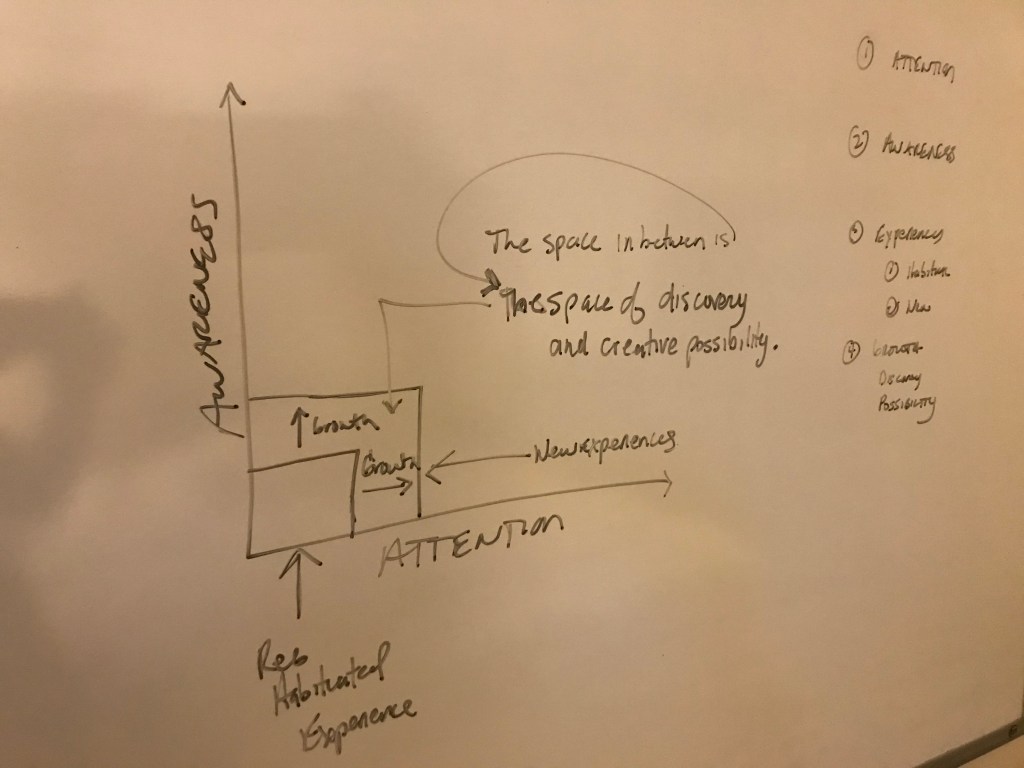 ① ATTENTION
② AWARENESS
③ Experiences
① Habitua
② New
④ Growth
Discovery
Possibility
AWARENESS
The space in between is
The space of discovery
and creative possibility.
↑ Growth
Growth
New experiences
ATTENTION
Habituated
Experience